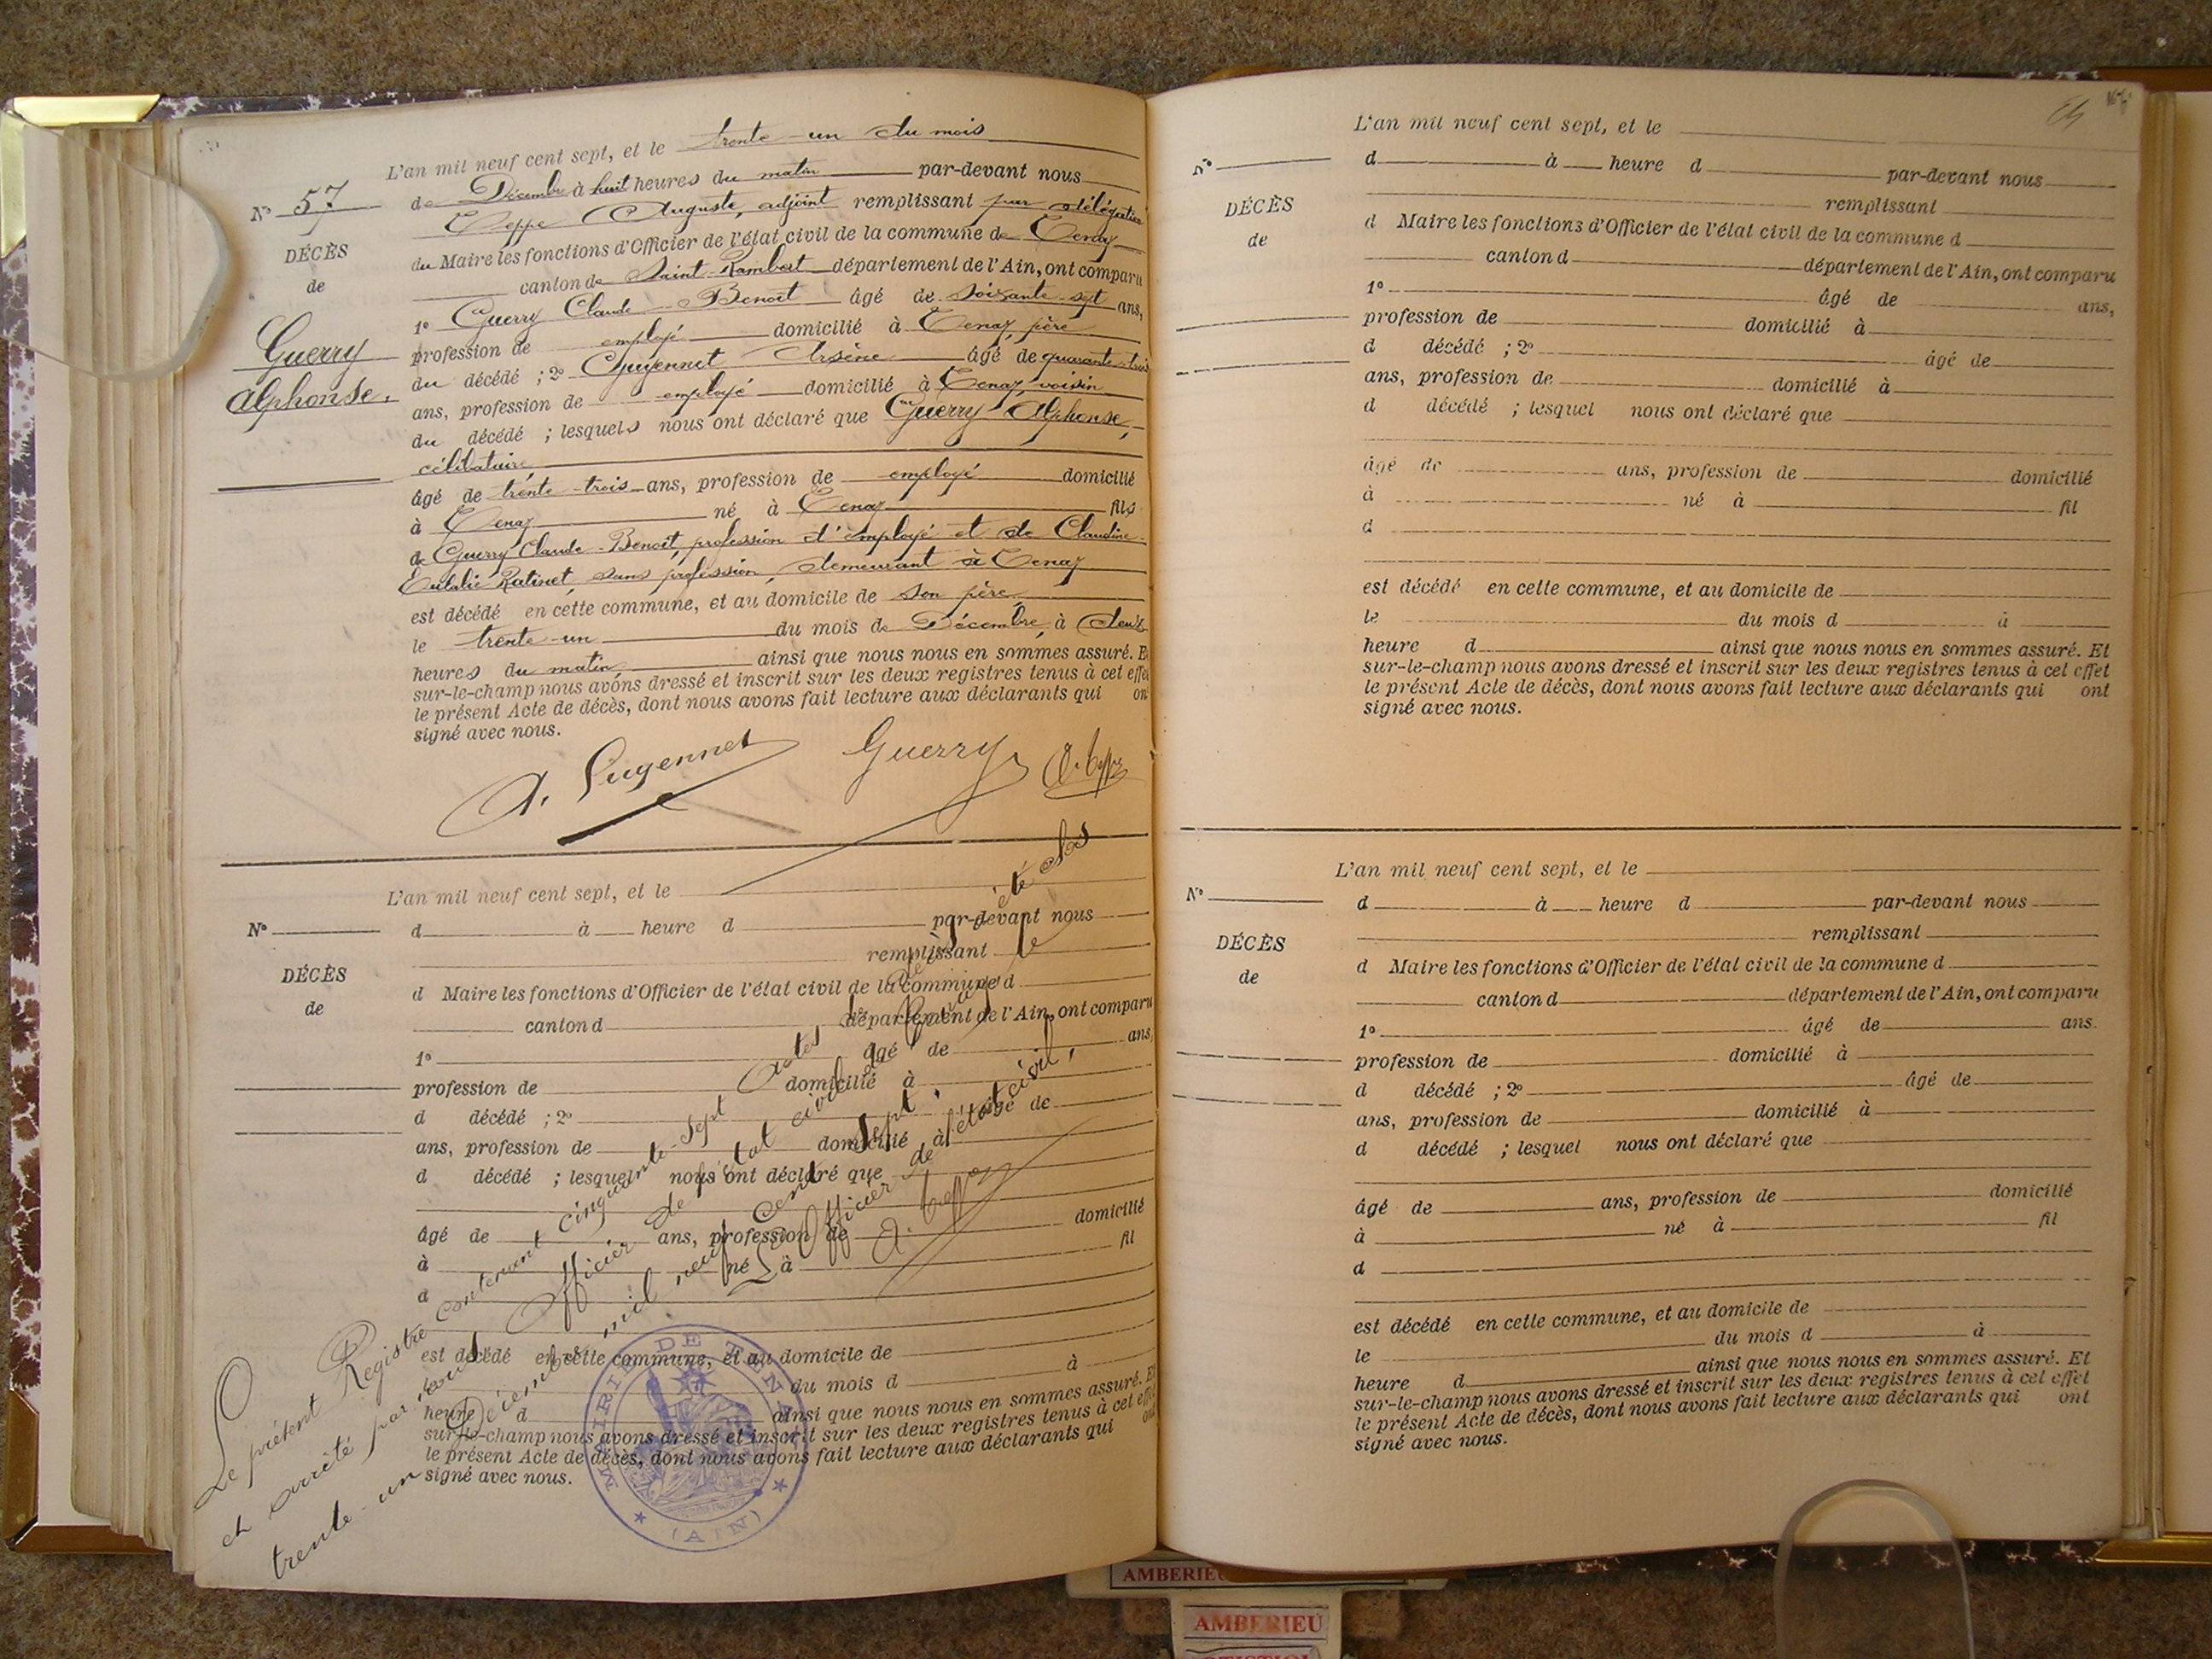 L'an mil neuf cent sept, et le trente-un du mois
de Décembre à huit heures du matin par-devant nous
Teppe Auguste, adjoint remplissant par délégation
du Maire les fonctions d'Officier de l'état civil de la commune de Tenay
canton de Saint-Rambert département de l'Ain, ont comparu
1° Guerry Claude-Benoît âgé de soixante-sept ans,
profession de employé domicilié à Tenay, père
du décédé ; 2° Guyennet Arsène âgé de quarante-trois
ans, profession de employé domicilié à Tenay, voisin
du décédé ; lesquels nous ont déclaré que Guerry Alphonse,
célibataire
âgé de trente-trois ans, profession de employé domicilié
à Tenay né à Tenay fils
de Guerry Claude-Benoît, profession d'employé et de Claudine
Eulalie Ratinet, sans profession, demeurant à Tenay
est décédé en cette commune, et au domicile de son père
le trente-un du mois de Décembre, à deux
heures du matin, ainsi que nous nous en sommes assuré. Et
sur-le-champ nous avons dressé et inscrit sur les deux registres tenus à cet effet
le présent Acte de décès, dont nous avons fait lecture aux déclarants qui ont
signé avec nous.
N° 57
DÉCÈS
de
Guerry
Alphonse.
Guerry
L'an mil neuf cent sept, et le
N° d à heure d par-devant nous
remplissant
DÉCÈS
de
d Maire les fonctions d'Officier de l'état civil de la commune d
canton d département de l'Ain, ont comparu
1° âgé de ans,
profession de domicilié à
d décédé ; 2° âgé de
ans, profession de domicilié à
d décédé ; lesquel nous ont déclaré que
âgé de ans, profession de domicilié
à né à fil
d
est décédé en cette commune, et au domicile de
le du mois d à
heure d ainsi que nous nous en sommes assuré. Et
sur-le-champ nous avons dressé et inscrit sur les deux registres tenus à cet effet
le présent Acte de décès, dont nous avons fait lecture aux déclarants qui ont
signé avec nous.
Le présent Registre contenant cinquante-sept Actes de décès a été clos
et arrêté par nous Officier de l'état civil de Tenay, le
trente-un Décembre mil neuf cent sept.
L'Officier de l'état civil,
A. Teppe
MAIRIE DE TENAY
(AIN)
L'an mil neuf cent sept, et le
N° d à heure d par-devant nous
remplissant
DÉCÈS
de
d Maire les fonctions d'Officier de l'état civil de la commune d
canton d département de l'Ain, ont comparu
1° âgé de ans,
profession de domicilié à
d décédé ; 2° âgé de
ans, profession de domicilié à
d décédé ; lesquel nous ont déclaré que
âgé de ans, profession de domicilié
à né à fil
d
est décédé en cette commune, et au domicile de
le du mois d à
heure d ainsi que nous nous en sommes assuré. Et
sur-le-champ nous avons dressé et inscrit sur les deux registres tenus à cet effet
le présent Acte de décès, dont nous avons fait lecture aux déclarants qui ont
signé avec nous.
L'an mil neuf cent sept, et le
N° d à heure d par-devant nous
remplissant
DÉCÈS
de
d Maire les fonctions d'Officier de l'état civil de la commune d
canton d département de l'Ain, ont comparu
1° âgé de ans.
profession de domicilié à
d décédé ; 2° âgé de
ans, profession de domicilié à
d décédé ; lesquel nous ont déclaré que
âgé de ans, profession de domicilié
à né à fil
d
est décédé en cette commune, et au domicile de
le du mois d à
heure d ainsi que nous nous en sommes assuré. Et
sur-le-champ nous avons dressé et inscrit sur les deux registres tenus à cet effet
le présent Acte de décès, dont nous avons fait lecture aux déclarants qui ont
signé avec nous.
AMBERIEU
AMBERIEU